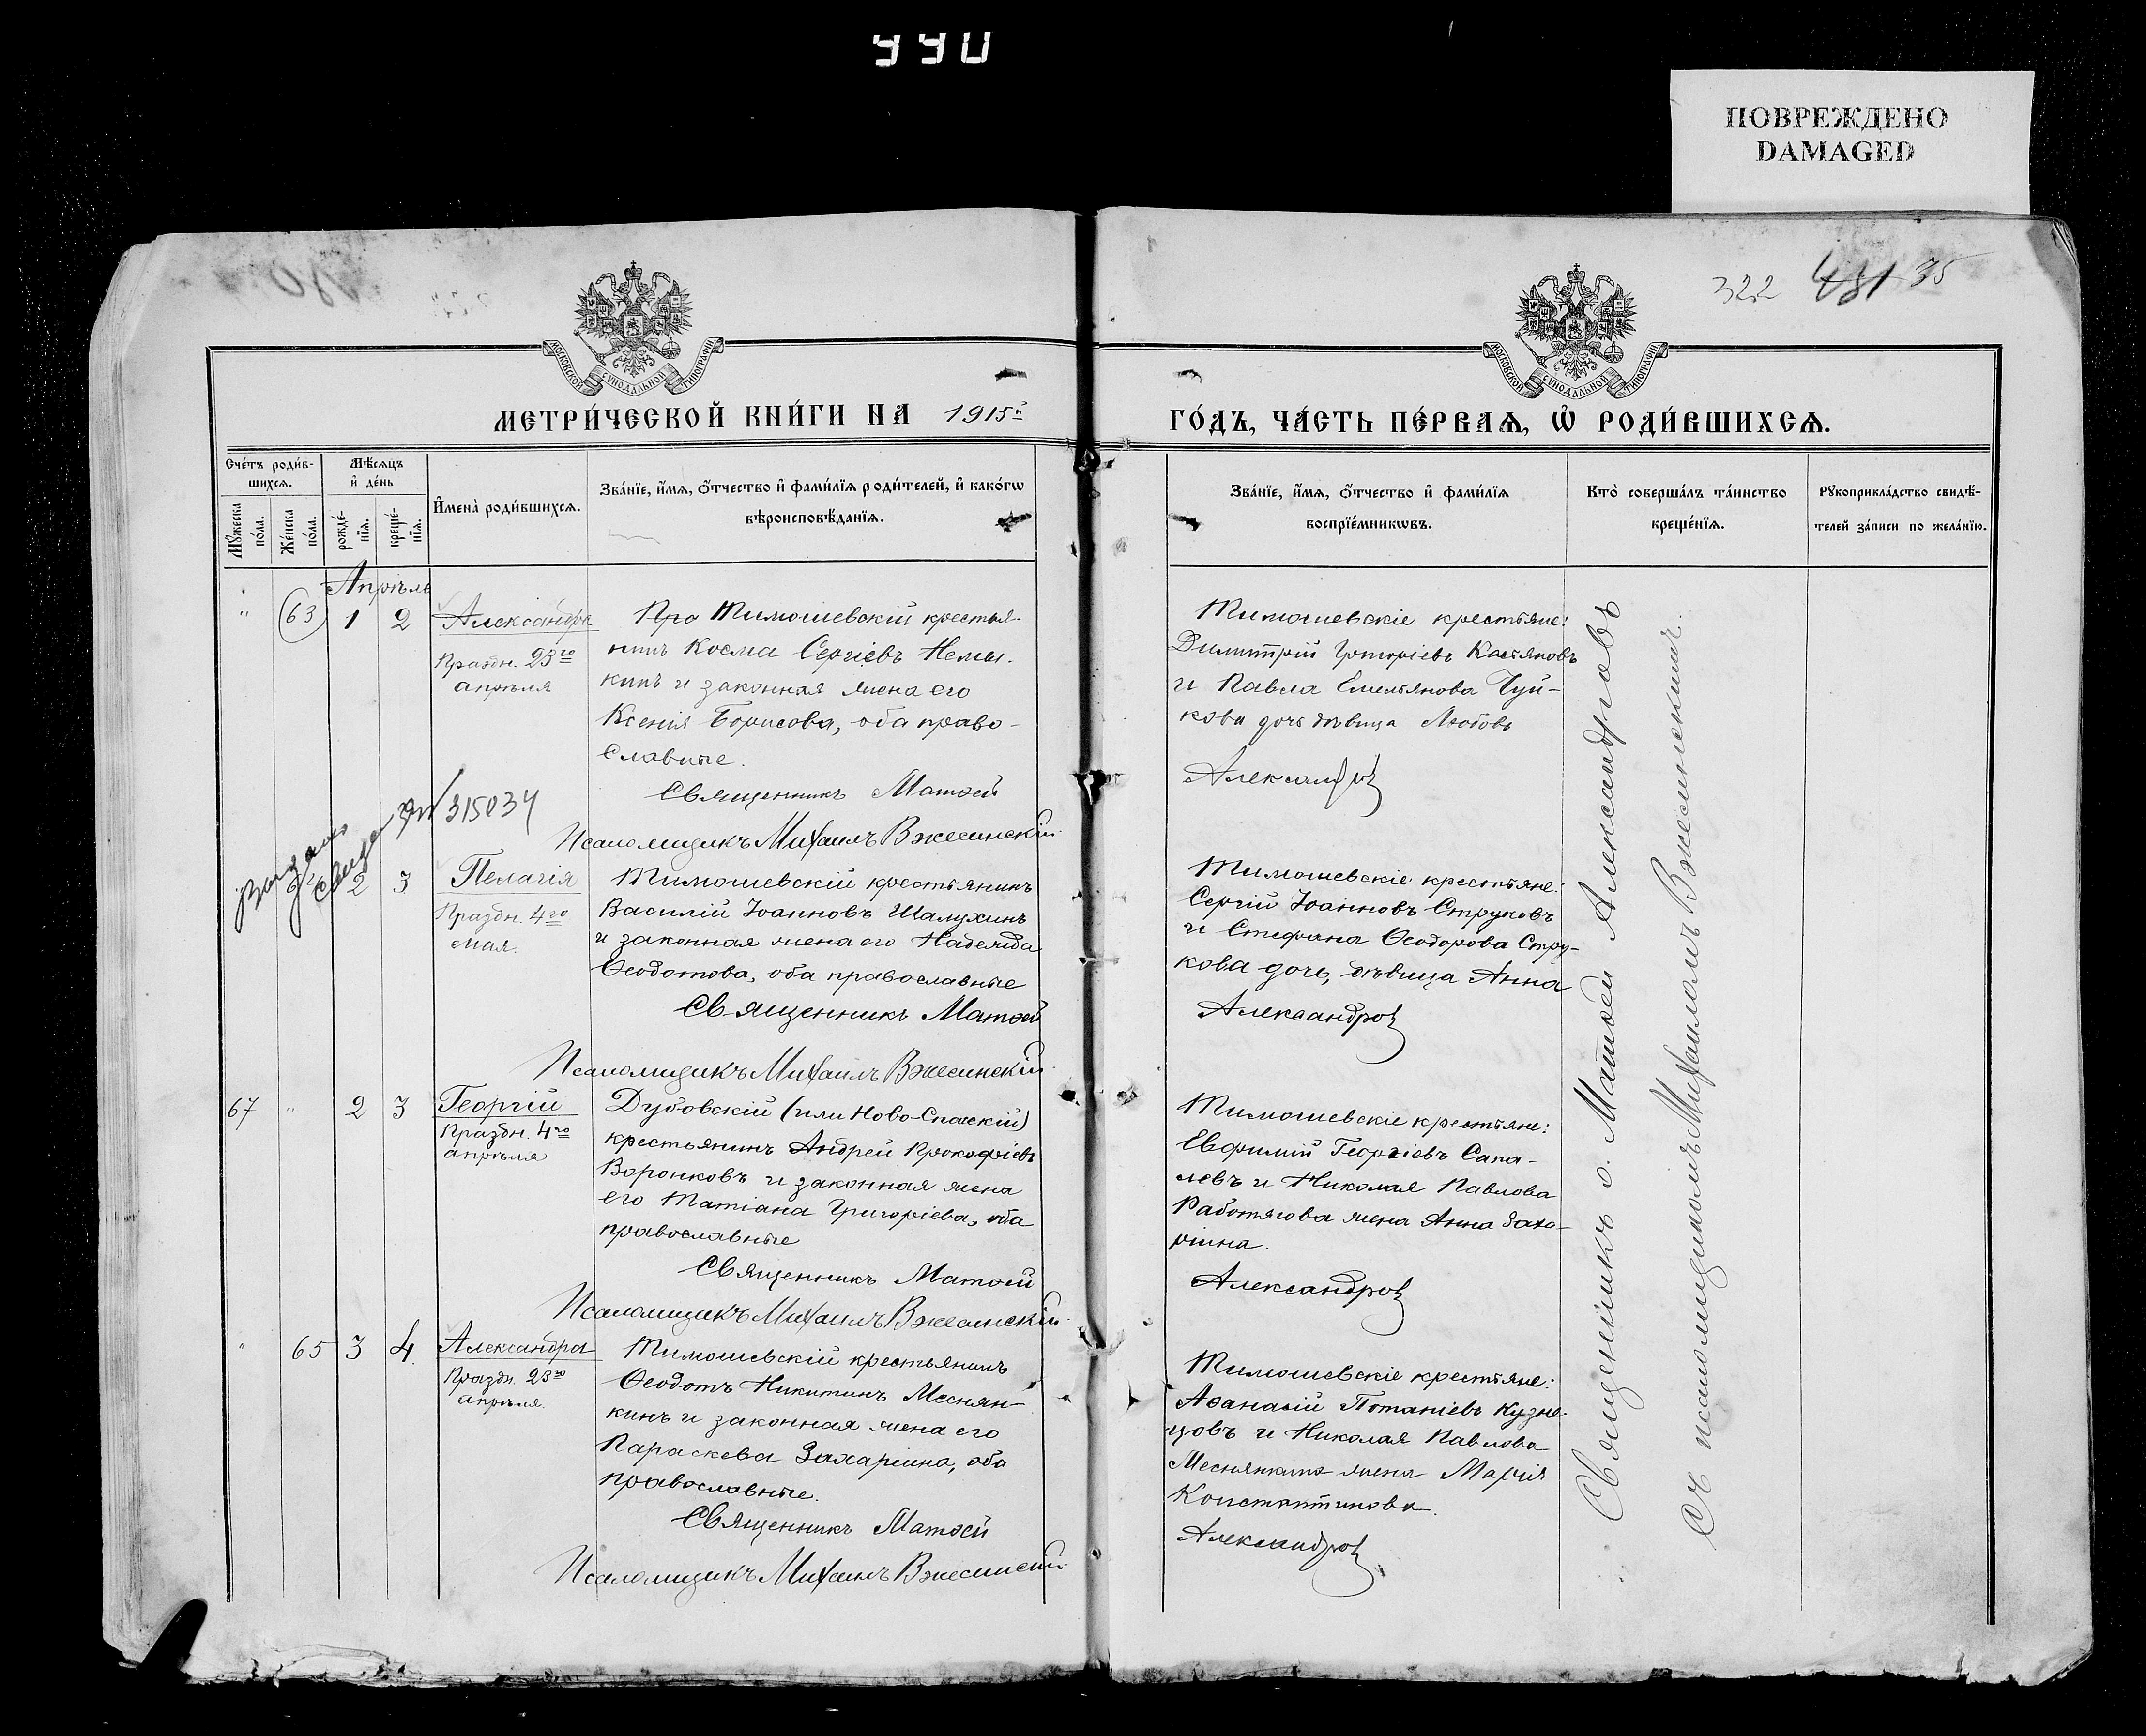 990
ПОВРЕЖДЕНО
DAMAGED
322 35
МОСКОВСКОЙ СѴНОДАЛЬНОЙ ТИПОГРАФІИ
МОСКОВСКОЙ СѴНОДАЛЬНОЙ ТИПОГРАФІИ
МЕТРИ́ЧЕСКОЙ КНИ́ГИ НА 1915й
ГО́ДЪ, ЧА́СТЬ ПЕ́РВАѦ, Ѡ҆ РОДИ́ВШИХСѦ.
Сче́тъ роди́в-
шихсѧ.
Мѣ́сѧцъ
и҆ де́нь
Мꙋ́жеска по́ла.
Же́нска по́ла.
рожде́-нїѧ.
креще́-нїѧ.
И҆мена̀ роди́вшихсѧ.
Зва́нїе, и҆́мѧ, ѻ҆́тчество и҆ фами́лїѧ роди́телей, и҆ како́гѡ
вѣроисповѣ́данїѧ.
Зва́нїе, и҆́мѧ, ѻ҆́тчество и҆ фами́лїѧ
воспрїе́мникѡвъ.
Кто̀ соверша́лъ та́инство
креще́нїѧ.
Рꙋкоприкла́дство свидѣ́-
телей за́писи по жела́нїю.
Апрѣль
" 63 1 2 Александра
Праздн. 23го
апрѣля
Про Тимошевскій крестья-
нинъ Косма Сергіевъ Немы-
кинъ и законная жена его
Ксенія Борисова, оба право-
славные.
Священникъ Матѳей
Псаломщикъ Михаилъ Вжесинскій
Тимошевскіе крестьяне:
Димитрій Григоріевъ Костяковъ
и Павла Емельянова Чуй-
кова дочь дѣвица Любовь
Александровъ
Выдано
315034
2 3 Пелагія
Праздн. 4го
мая.
Тимошевскій крестьянинъ
Василій Іоанновъ Шалухинъ
и законная жена его Надежда
Ѳеодотова, оба православные
Священникъ Матѳей
Псаломщикъ Михаилъ Вжесинскій
Тимошевскіе крестьяне:
Сергій Іоанновъ Струковъ
и Стефана Ѳеодорова Стру-
кова дочь, дѣвица Анна
Александровъ
67 " 2 3 Георгій
Праздн. 4го
апрѣля
Дубовскій (или Ново-Спаскій)
крестьянинъ Андрей Прокофіевъ
Воронковъ и законная жена
его Татіана Григоріева, оба
православные
Священникъ Матѳей
Псаломщикъ Михаилъ Вжесинскій
Тимошевскіе крестьяне:
Евфимій Георгіевъ Сапа-
левъ и Николая Павлова
Работягова жена Анна Заха-
ріина.
Александровъ
" 65 3 4 Александра
Праздн. 23го
апрѣля
Тимошевскій крестьянинъ
Ѳеодотъ Никитинъ Меснян-
кинъ и законная жена его
Параскева Захаріина, оба
православные.
Священникъ Матѳей
Псаломщикъ Михаилъ Вжесинскій
Тимошевскіе крестьяне:
Аѳанасій Потапіевъ Кузне-
цовъ и Николая Павлова
Меснянкина жена Марія
Константинова.
Александровъ
Священникъ о. Матѳей Александровъ
Съ псаломщикомъ Михаиломъ Вжесинскимъ.